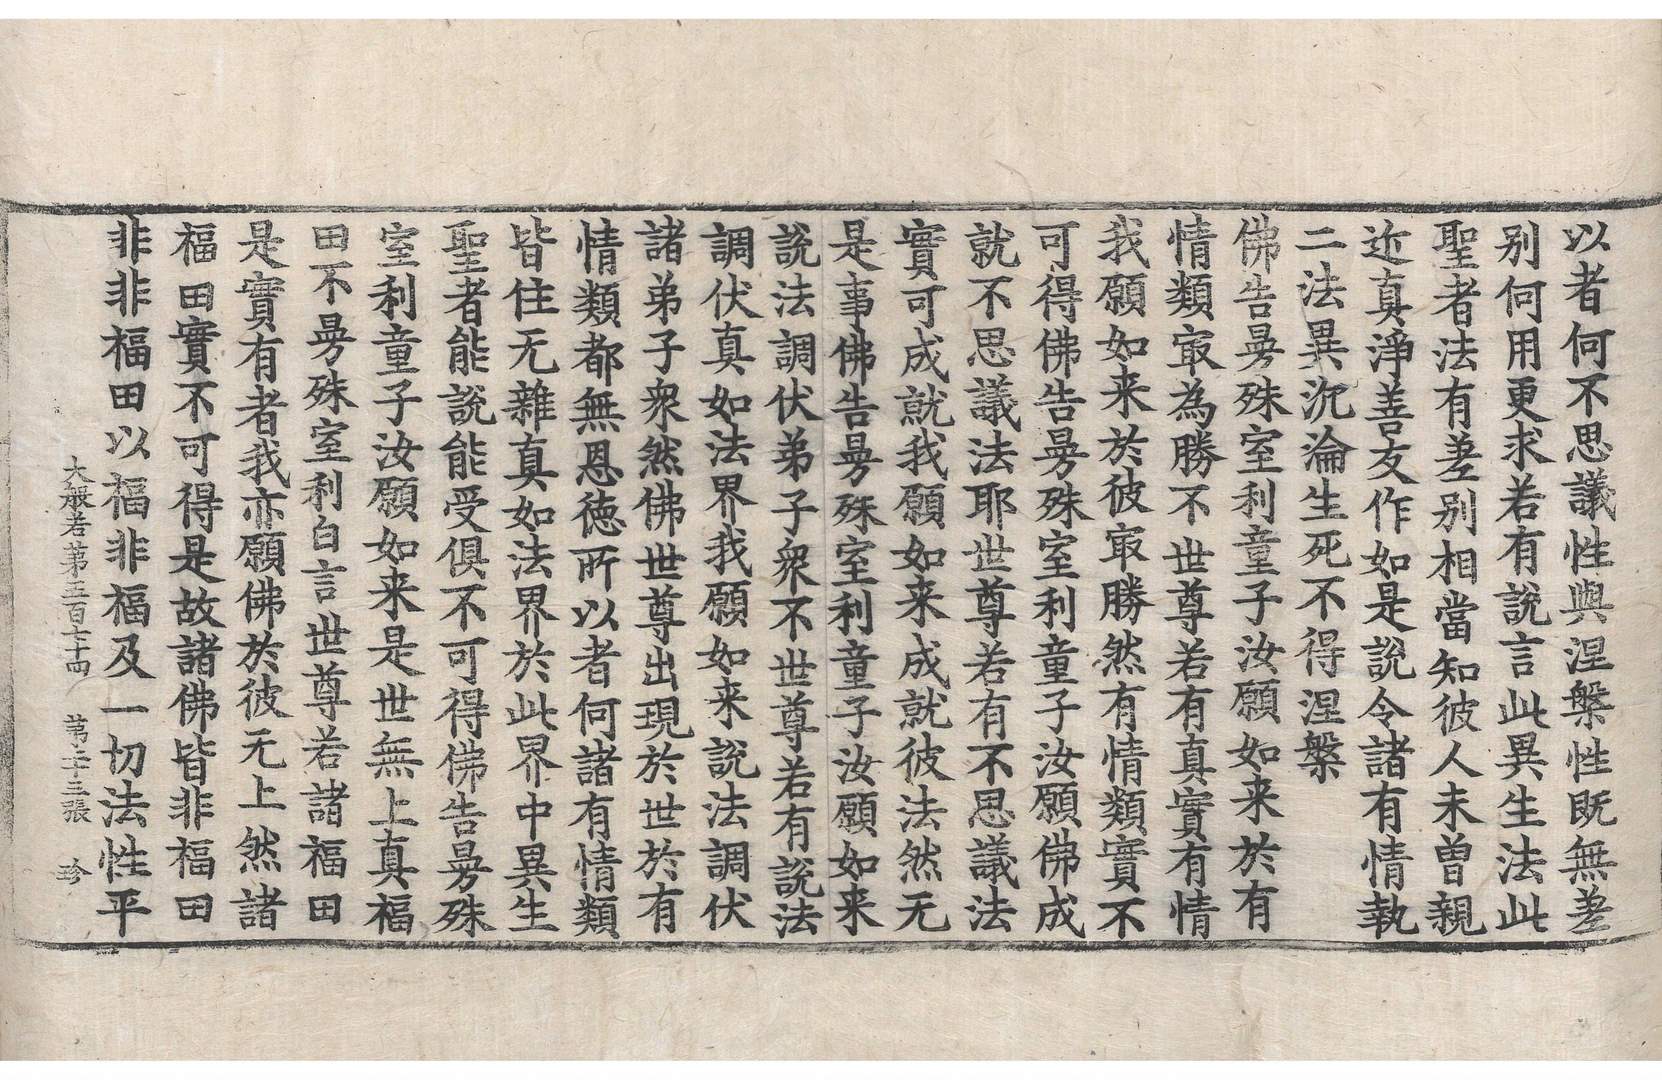 以者何不思議性與涅槃性既無差
别何用更求若有說言此異生法此
聖者法有差别相當知彼人未曾親
近真淨善友作如是說令諸有情執
二法異沉淪生死不得涅槃
佛告曼殊室利童子汝願如来於有
情類㝡為勝不世尊若有真實有情
我願如来於彼㝡勝然有情類實不
可得佛告曼殊室利童子汝願佛成
就不思議法耶世尊若有不思議法
實可成就我願如来成就彼法然无
是事佛告曼殊室利童子汝願如来
說法調伏弟子衆不世尊若有說法
調伏真如法界我願如来說法調伏
諸弟子衆然佛世尊出現於世於有
情類都無恩徳所以者何諸有情類
皆住无雜真如法界於此界中異生
聖者能說能受俱不可得佛告曼殊
室利童子汝願如来是世無上真福
田不曼殊室利白言世尊若諸福田
是實有者我亦願佛於彼无上然諸
福田實不可得是故諸佛皆非福田
非非福田以福非福及一切法性平
大般若第五百七十四 第二十三張 珍